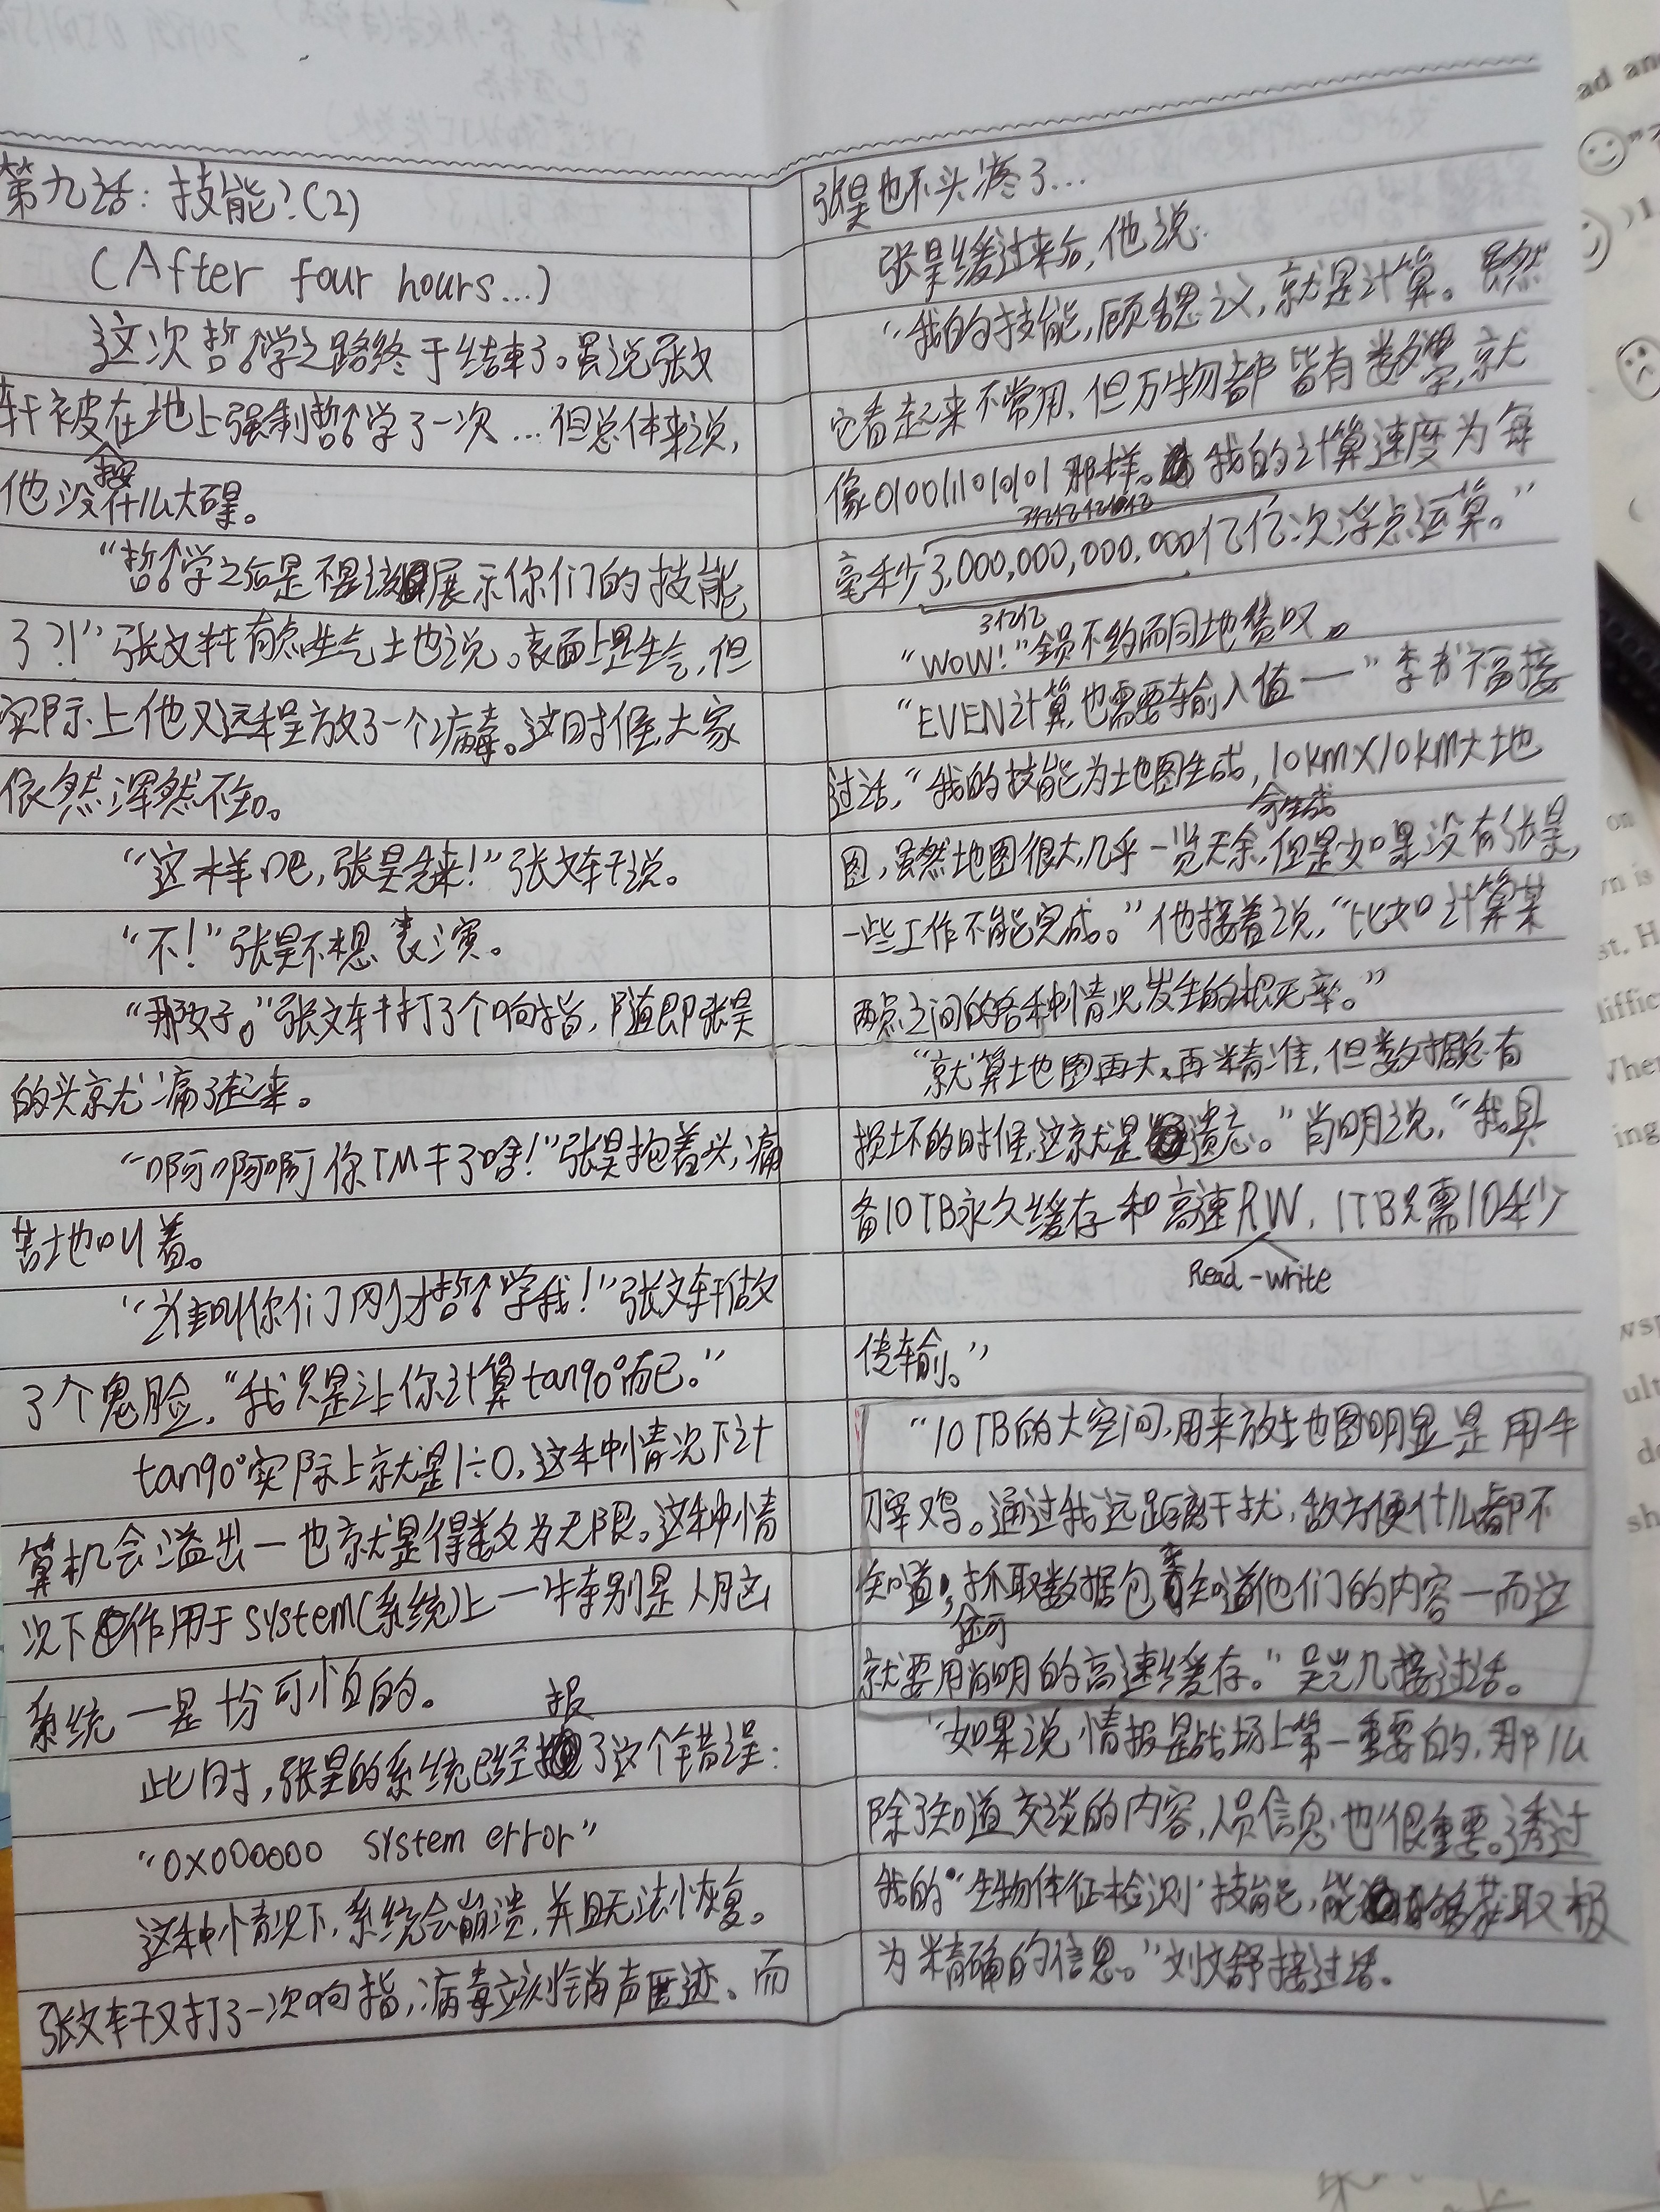 第九话：技能？(2)
(After four hours...)
这次哲学之路终于结束了。虽说张文
轩被按在地上强制哲学了一次…但总体来说，
他没什么大碍。
“哲学之后是不是该展示你们的技能
了？！”张文轩有点生气地说。表面上是生气，但
实际上他又远程放了一个病毒。这时候，大家
依然浑然不知。
“这样吧，张昊先来！”张文轩说。
“不！”张昊不想表演。
“那好。”张文轩打了个响指，随即张昊
的头就痛了起来。
“啊啊啊你TM干了啥！”张昊抱着头，痛
苦地叫着。
“谁叫你们刚才哲学我！”张文轩做
了个鬼脸，“我只是让你计算tan90°而已。”
tan90°实际上就是1÷0，这种情况下计
算机会溢出—也就是得数为无限。这种情
况下作用于system(系统)上—特别是人脑这
系统—是十分可怕的。
此时，张昊的系统已经报了这个错误：
“0x000000 system error”
这种情况下，系统会崩溃，并且无法恢复。
张文轩又打了一次响指，病毒立刻销声匿迹、而
张昊也不头疼了…
张昊缓过来后，他说：
“我的技能，顾名思义，就是计算。虽然
它看起来不常用，但万物都皆有数学，就
像0100111010101那样。我的计算速度为每
毫秒3,000,000,000,000亿亿次浮点运算。”
3亿亿
“WOW！”全员不约而同地赞叹。
“EVEN计算，也需要输入值——”李书福接
过话，“我的技能为地图生成，10km×10km大地
图，虽然地图很大，几乎一览无余，但是如果没有张昊，
一些工作不能完成。”他接着说，“比如计算某
两点之间的各种情况发生的概率。”
“就算地图再大，再精准，但数据总有
损坏的时候，这就是遗忘。”肖明说，“我具
备10TB永久缓存和高速RW，1TB只需10秒
Read-write
传输。”
“10TB的大空间，用来放地图明显是用牛
刀宰鸡。通过我远距离干扰，敌方便什么都不
知道，抓取数据包知道他们的内容—而这
就要用肖明的高速缓存。”吴岂几接过话。
“如果说情报是战场上第一重要的，那么
除了知道交谈的内容，人员信息也很重要。透过
我的“生物体征检测”技能，能够获取极
为精确的信息。”刘文舒接过话。